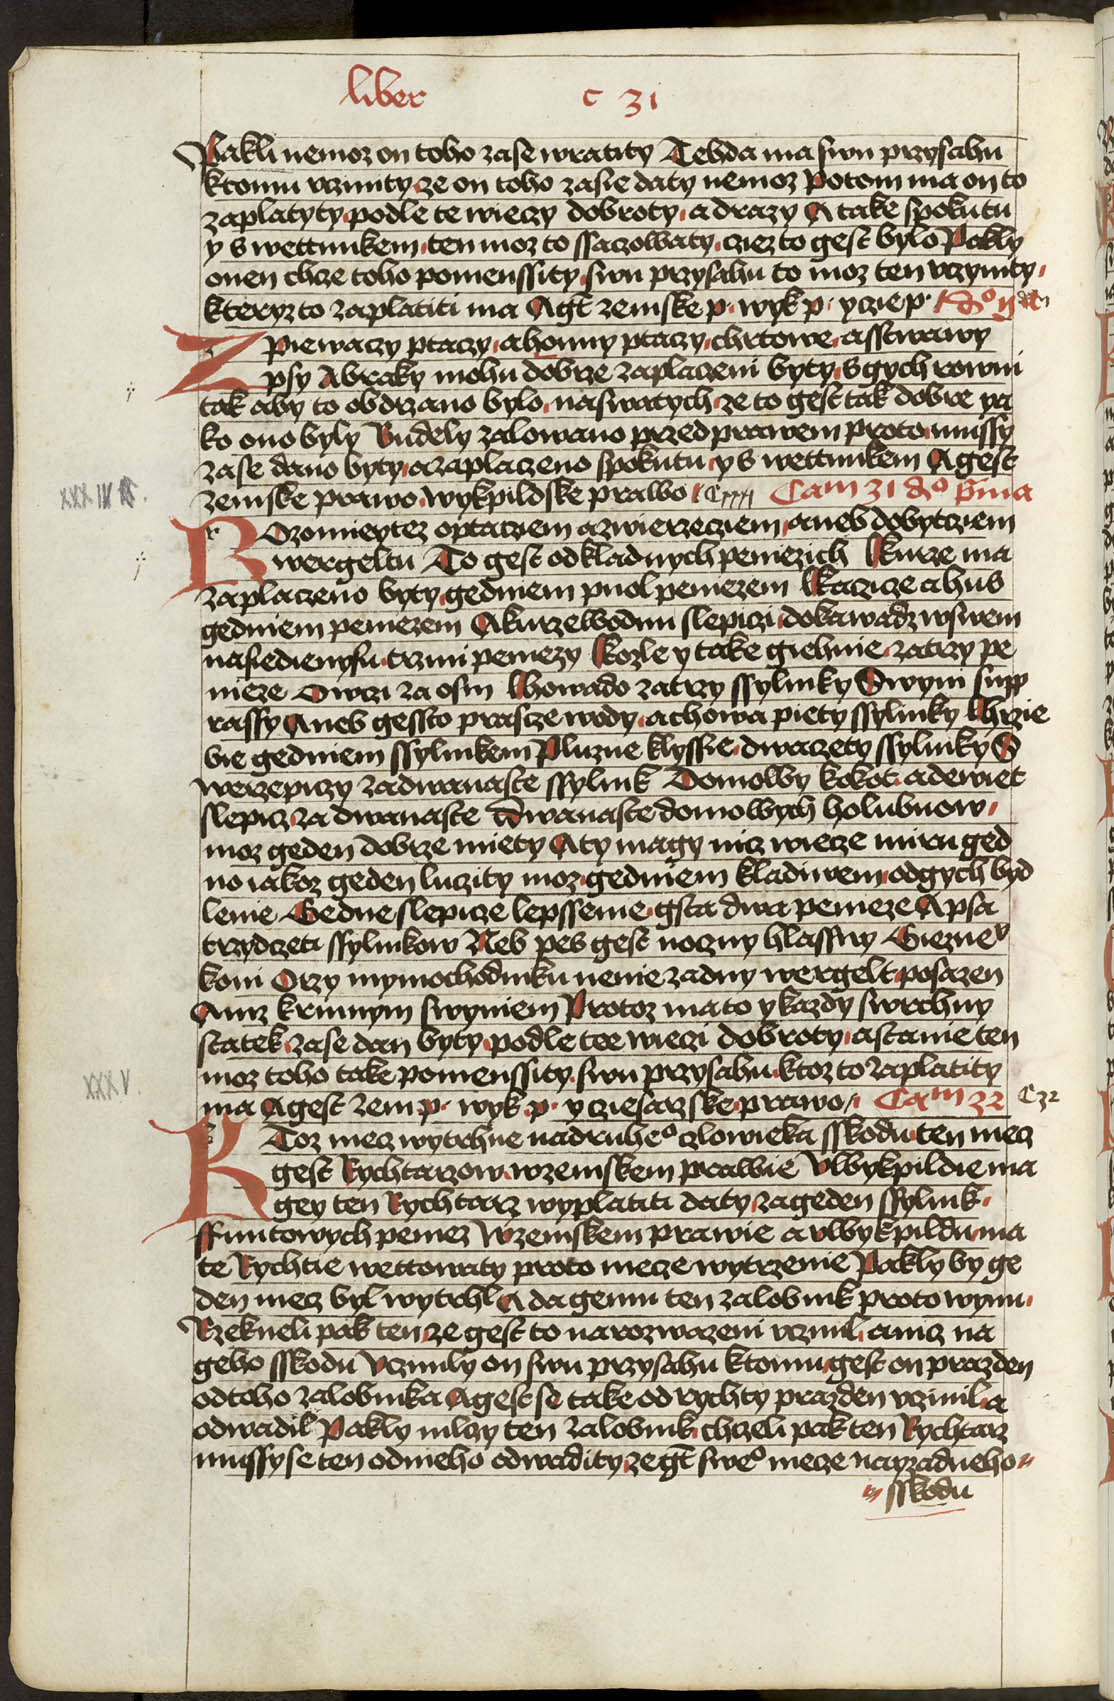 liber c 31
Pakli nemoz on toho zase wratity Tehda ma swu przysahu
ktomu vczinity ze on toho zasie daty nemoz Potom ma on to
zaplatyty podle te wieczy dobroty a drazy A take spokutu
y s wettunkem ten moz to ssaczowaty cziez to gest bylo Pakly
onen chcze toho pomenssity swu przysahu to moz ten vczynity
kteryz to zaplatiti ma Agt zemske p. wyk p. y cziep.
Zpiewaczy ptaczy a honny ptaczy chrtowe a sstwawy
psy A braky mohu dobrze zaplaczeni byty s gych rowni
tak aby to obdrzano bylo na swatych ze to gest tak dobre ya
ko ono byly Budely zalowano przed prawem proto mussy
zase dano byty a zaplaczeno spokutu y s wettunkem A gest
xxxiiii zemske prawo wykpildske prawo Cam 31 do prima
Rozomieytez o ptaciem a zwierzecziem aneb dobytcziem
wergeltu To gest od kladnych peniezich Kurze ma
zaplaczeno byty gedniem puol peniezem Kaczicze a hus
gedniem peniezem A kurzewodnu slepiczi dokawadz wswem
nasiedienysu trzmi peniezy Kozle y take giehnie za trzy pe
nieze Owczi za osm Howado za trzy ssylinky Swym supp
rassy Aneb gessto prascze wody a chowa piety ssylinky Hrzie
bie gedniem ssylinkem Pluzne klyssie dwaczety ssylinky S
werzepiczy za dwanaste ssylink Domowy kokot a dewiet
slepicz za dwanaste Dwanaste domowych holubuow
moz geden dobrze miety A ty magy nicz wiecze miru ged
no iakoz geden luczity moz gedniem kladiwem od gych byd
lenie Gedne slepicze lepssenie gsta dwa penieze A psa
trzydczeti ssylinkow Neb pes gest noczny hlassny Giezne
koni Orzy mymochodniku nenie zadny wergelt posazen
Aniz krmnym swyniem Protoz ma to y kazdy swrchny
statek zase dan byty podle tee wieczi dobroty a stanie ten
xxxv. moz toho take pomenssity swu przysahu ktoz to zaplatity
ma A gest zem. p. wyk. p. y cziesarzske prawo Cam 32 C 32
Ktoz mecz wytrhne na druheo czlowieka sskodu ten mecz
gest Rychtarzow w zemskem prawie V wykpildie ma
gey ten Rychtarz wyplatiti daty za geden ssylink
ffuntowych peniez W zemskem prawie a v wykpildu ma
te Rychtie wettowaty proto mecze wytrzenie Pakly by ge
den mecz byl wytrhl A da gemu ten zalobnik proto winu
Rzekneli pak ten ze gest to na rozwazeni vczinil aniz na
geho sskodu Vczinily on swu przysahu ktomu gest on prazden
od toho zalobnika A gest se take od rychty prazden vczinil a
odwadil Pakly mlczy ten zalobnik chczeli pak ten Rychtarz
mussy se ten od nieho odwadity ze gt sweo mecze na zadneho
sskodu